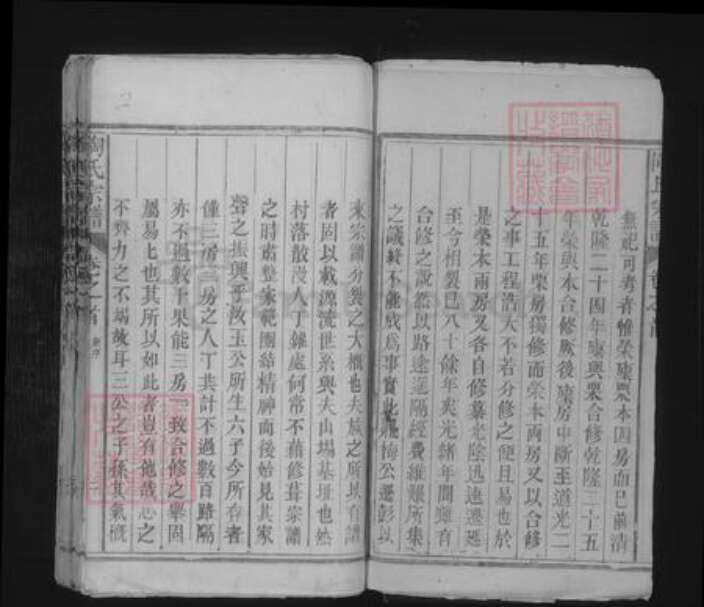 無祀可考者惟榮康槼本四房而已前清
乾隆二十四年康與槼合修乾隆二十五
年榮與本合修厥後康房中斷至道光二
十五年槼房獨修而榮本兩房又以合修
之事工程浩大不若分修之便且易也於
是榮本兩房又各自修纂光陰迅速遷延
至今相裂已八十餘年矣光緒年間雖有
合修之說然以路途遥隔經費維艱所集
之議終不能成爲事實此 悔公遷彭以
來宗譜分裂之大概也夫族之所以有譜
者固以載源流世系與夫山塲基址也然
村落散漫人丁雜處何常不藉修葺宗譜
之時肅整家範團結精神而後始見其家
聲之振興乎汝玉公所生六子今所存者
僅三房三房之人丁共計不過數百路隔
亦不過數十果能三房一致合修之舉固
屬易上也其所以如此者豈有他哉志之
不齊力之不竭故耳三公之子孫其氣概
陶氏宗譜 卷之首